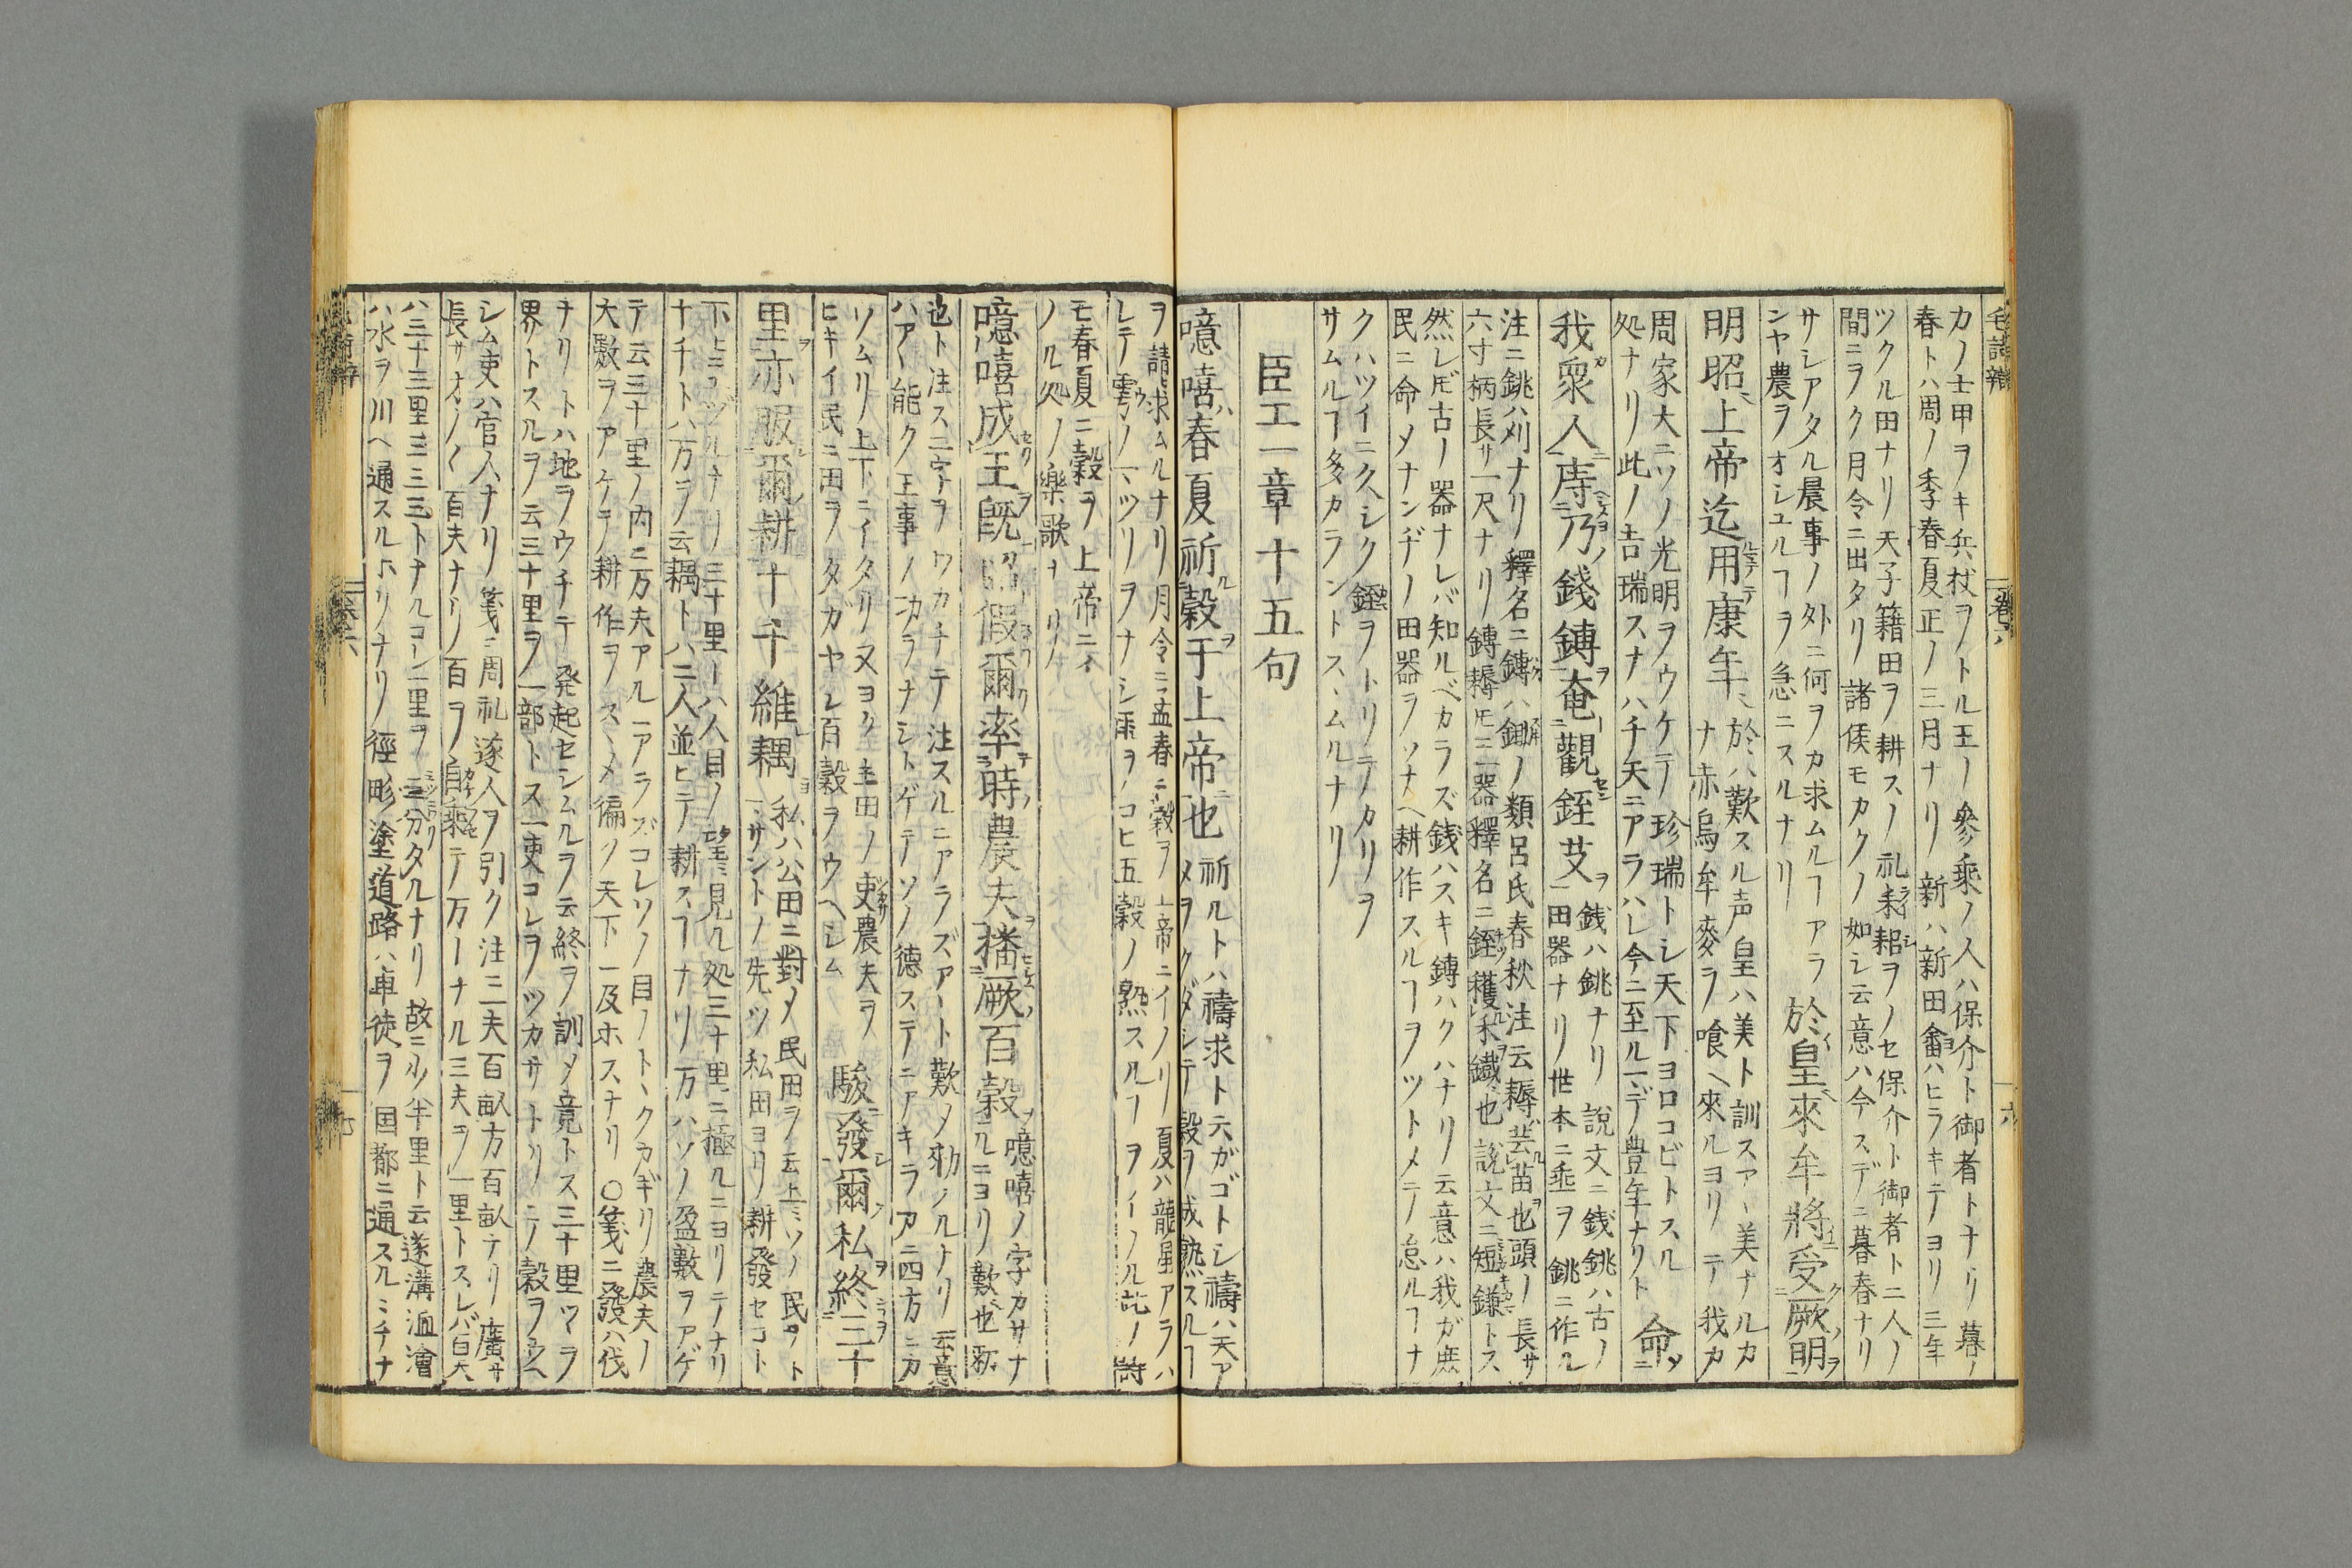 毛詩辨 卷六 六
カノ士甲ヲキ兵杖ヲトル王ノ參乘ノ人ハ保介ト御者トナリ暮ノ
春トハ周ノ季春夏正ノ三月ナリ新ハ新田畬ハヒラキテヨリ三年
ツクル田ナリ天子籍田ヲ耕スノ礼耒耜ヲノセ保介ト御者ト二人ノ
間ニヲク月令ニ出タリ諸侯モカクノ如シ云意ハ今スデニ暮春ナリ
サシアタル農事ノ外ニ何ヲカ求ムルヿアラ
ンヤ農ヲオシユルヿヲ急ニスルナリ
於皇來牟將受厥明
明昭上帝迄用康年
於ハ歎スル声皇ハ美ト訓スアヽ美ナルカ
ナ赤烏牟麥ヲ喰ヘ來ルヨリテ我カ
周家大ニソノ光明ヲウケテ珍瑞トシ天下ヨロコビトスル
処ナリ此ノ吉瑞スナハチ天ニアラハレ今ニ至ルマデ豊年ナリト
命
我衆人庤乃錢鎛奄觀銍艾
錢ハ銚ナリ説文ニ錢銚ハ古ノ
田器ナリ世本ニ垂ヲ銚ニ作ル
注ニ銚ハ刈ナリ釋名ニ鎛ハ鋤ノ類呂氏春秋注云耨芸苗也頭ノ長サ
六寸柄長サ一尺ナリ鎛耨ㇳモニ一器釋名ニ銍穫禾鐵也説文ニ短鎌トス
然レㇳモ古ノ器ナレバ知ルベカラズ錢ハスキ鎛ハクハナリ云意ハ我ガ庶
民ニ命メナンヂノ田器ヲソナヘ耕作スルヿヲツトメテ怠ルヿナ
クハツイニ久シク銍ヲトリテカリヲ
サムルヿ多カラントスヽムルナリ
臣工一章十五句
噫嘻春夏祈穀于上帝也
祈ルトハ禱求ト云ガゴトシ禱ハ天ア
メヲクダシテ穀ヲ成熟スルヿ
ヲ請求ムルナリ月令ニ孟春ニ穀ヲ上帝ニイノリ夏ハ龍星アラハ
レテ雩ノマツリヲナシ雨ヲコヒ五穀ノ熟スルヿヲイノル此ノ詩
モ春夏ニ穀ヲ上帝ニイ
ノル処ノ樂歌ナリ
噫嘻成王既昭假爾率時農夫播厥百穀
噫嘻ノ字カサナ
ルニヨリ歎也
也ト注ス二字ヲワカチテ注スルニアラズアヽト歎メ勑ノルナリ云意
ハアヽ能ク王事ノ力ヲナシトゲテソノ德ステニアキラカニ四方ニ及
ソムリノ上下ニイタリ又ヨク主田ノ吏農夫ヲ
ヒキイ民ニ田ヲタガヤシ百穀ヲウヘシム
駿發爾私終三十
里亦服爾耕十千維耦
私ハ公田ニ對メ民田ヲ云上ミソノ民ヲト
マサントノ先ツ私田ヨリ耕發セコト
三十里ーハ人目ノ望ミ見ル処三十里ニ極ルニヨリテナリ
十千トハ万ヲ云耦トハ二人並ヒテ耕スヿナリ万ハソノ盈數ヲアゲ
テ云三十里ノ内ニ万夫アルーアラズコレソノ目ノトヽクカギリ農夫ノ
大數ヲアケテ耕作ヲスヽメ徧ク天下ニ及ホスナリ○箋ニ發ハ伐
ナリトハ地ヲウチテ發起セシムルヲ云終ヲ訓メ竟トス三十里ツヽヲ
界トスルヲ云三十里ヲ一部トス一吏コレヲツカサトリテノ穀ヲウヘ
シム吏ハ官人ナリ箋ニ周礼遂人ヲ引ク注ニ一夫百畝方百畝ナリ廣サ
長サオノ〱百夫ナリノ百ヲ自乘テ万ーナル三夫ヲ一里トスレバ百夫
ハ三十三里三三三トナルコレ一里ヲ三分タルナリ故ニ少半里ト云遂溝洫澮
ハ水ヲ川ヘ通スルホリナリノ徑畛塗道路ハ車徒ヲ国都ニ通スルミチナ
卷六 七